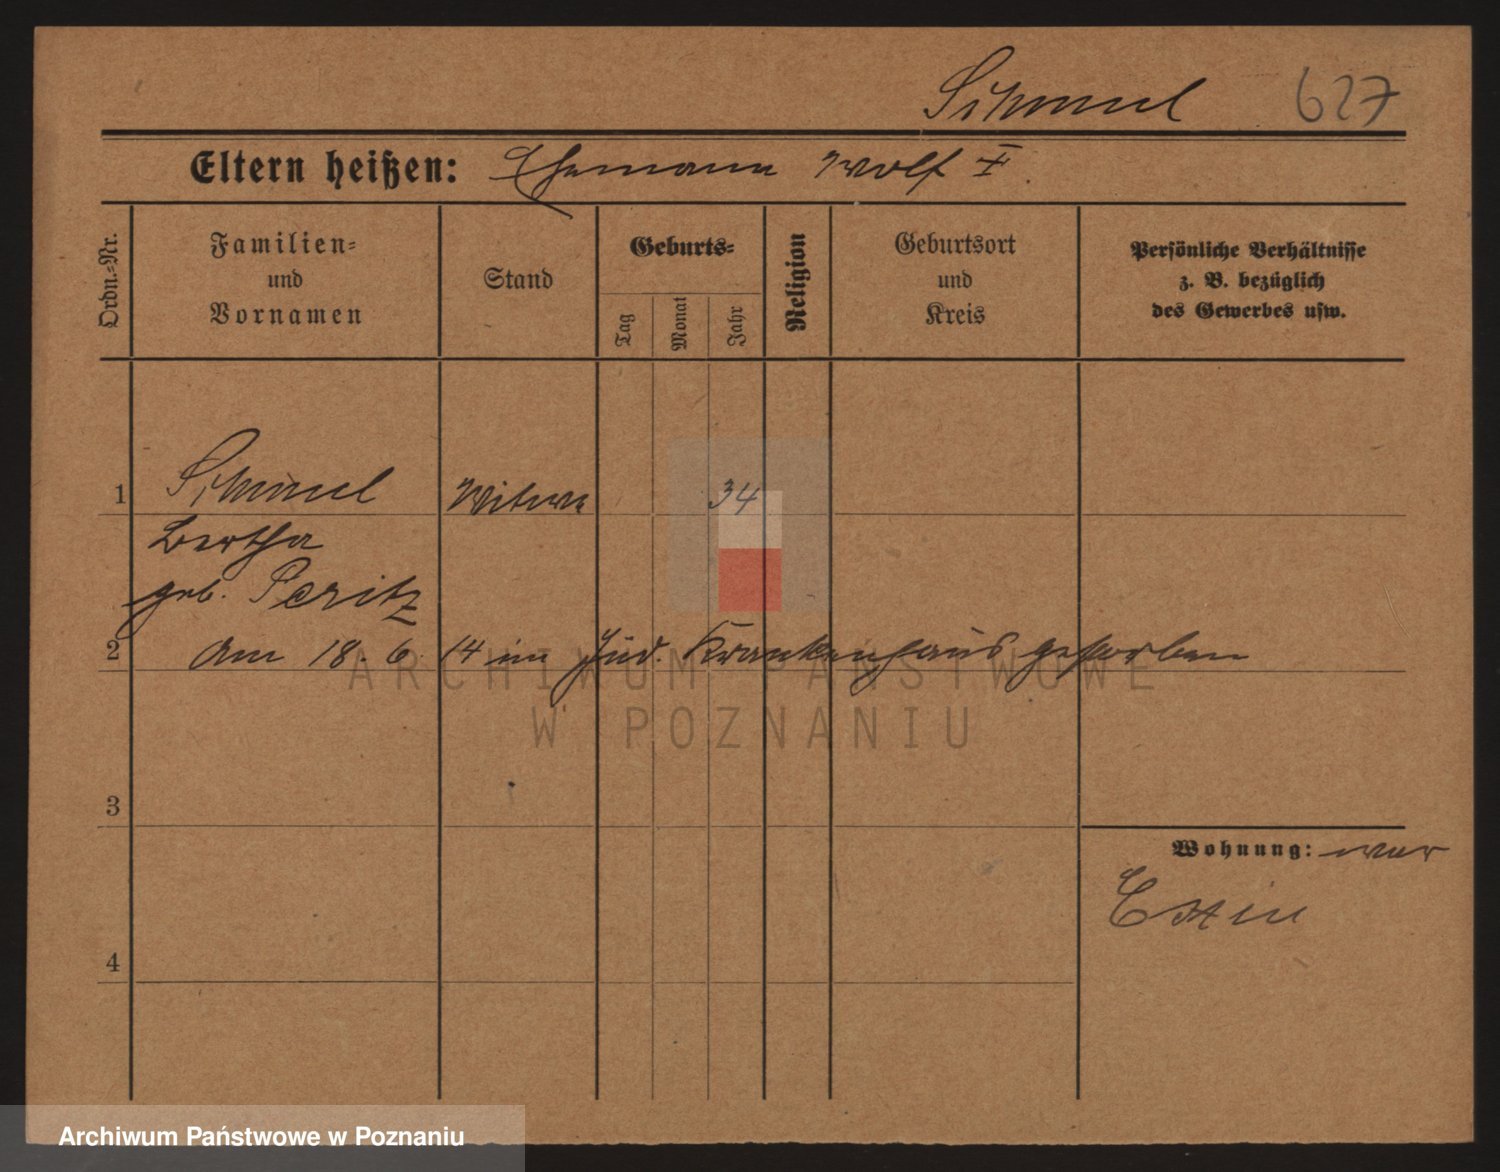 Schmul 627
Eltern heißen: Ehemann Wolf †.
Ordn.-Nr.
Familien-
und
Vornamen
Stand
Geburts-
Tag
Monat
Jahr
Religion
Geburtsort
und
Kreis
Persönliche Verhältnisse
z. B. bezüglich
des Gewerbes usw.
1 Schmul Witwe 34
Bertha
geb. Peritz
2 Am 18. 6. 14 im Jüd. Krankenhaus gestorben
ARCHIWUM PAŃSTWOWE
W POZNANIU
3
Wohnung: war
4
Archiwum Państwowe w Poznaniu